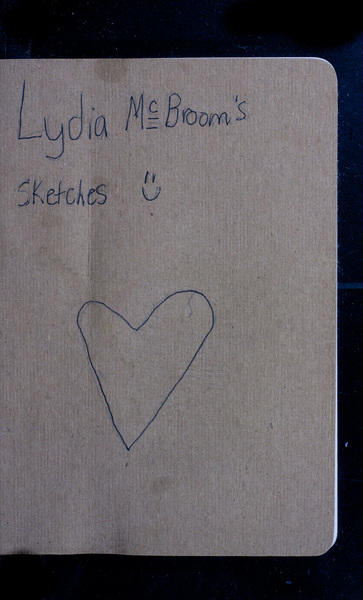 Lydia McBroom's
Sketches